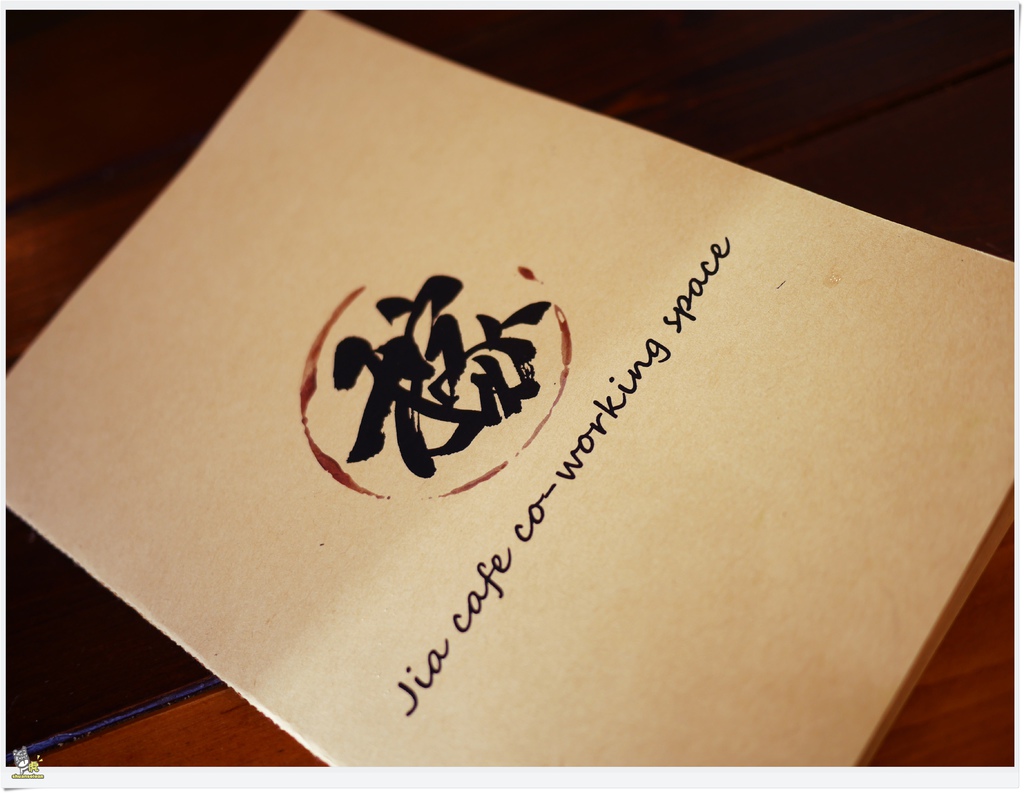 Jia cafe co-working space